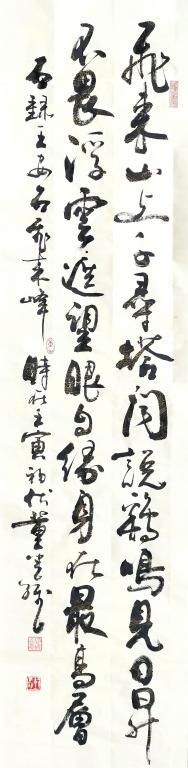 飛来山上千尋塔聞說鷄鳴見日昇
不畏浮雲遮望眼自緣身在最高層
右録王安石飛来峰 時在壬寅初伏董